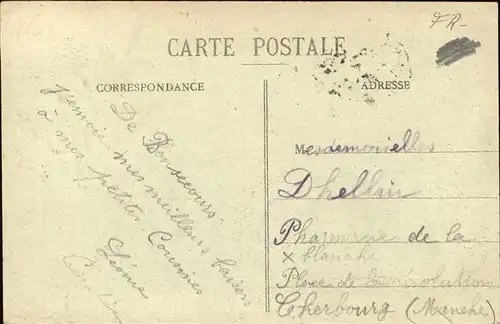 FR-
CARTE POSTALE
CORRESPONDANCE
ADRESSE
De Bonsecours
j'envoie mes meilleurs baisers
à mes petites Cousines
Mesdemoiselles
Dhellin
Pharmacie de la
X blanche
Place de la révolution
Cherbourg (Manche)